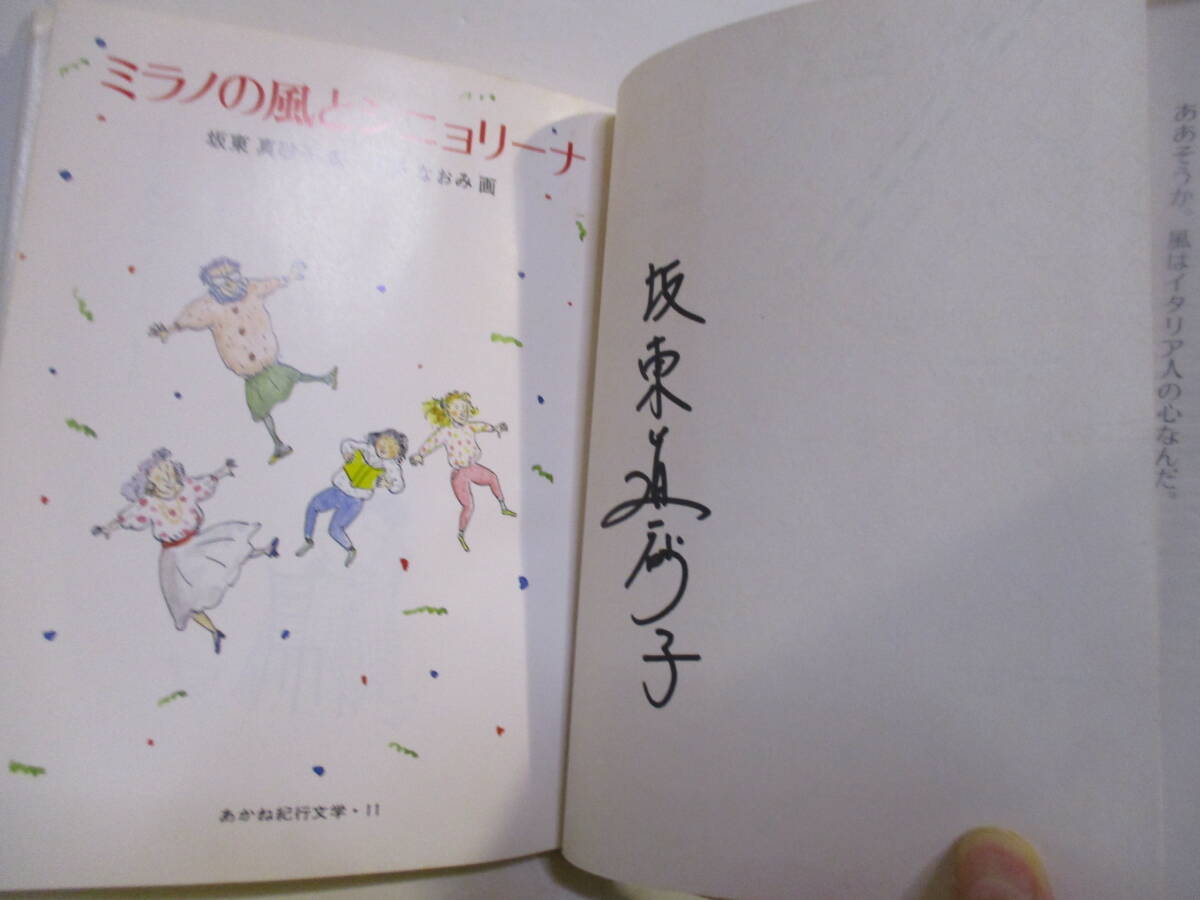 ミラノの風と ニョリーナ
坂東 真砂 なおみ 画
あかね紀行文学・11
坂東真砂子
ああそうか。風はイタリア人の心なんだ。